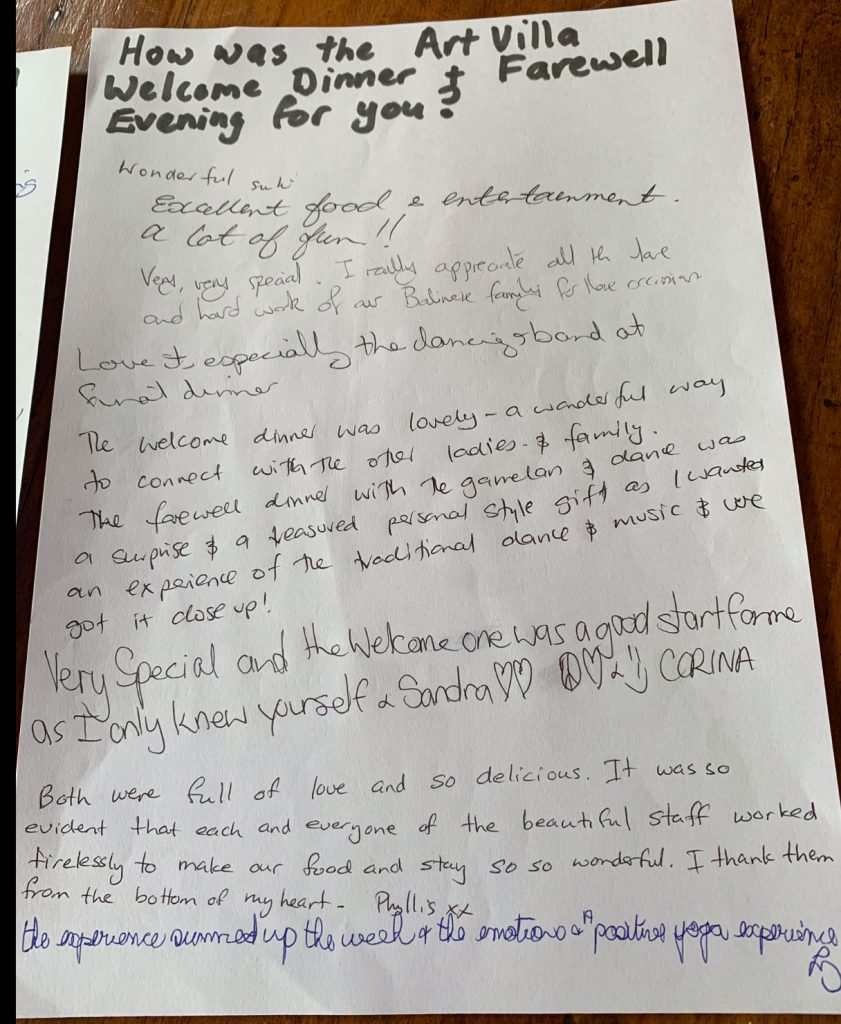 How was the Art Villa
Welcome Dinner & Farewell
Evening for you?
Wonderful
Excellent food & entertainment.
a lot of fun!!
Very, very special. I really appreciate all the love
and hard work of our Balinese family for these occasions
Love it, especially the dancing & band at
final dinner
The welcome dinner was lovely - a wonderful way
to connect with the other ladies & family.
The farewell dinner with the gamelan & dance was
a surprise & a treasured personal style gift as I wanted
an expeience of the traditional dance & music & we
got it close up!
Very Special and the Welcome one was a good start for me
as I only knew yourself & Sandra ♡♡ ☮♡& :) CORINA
Both were full of love and so delicious. It was so
evident that each and everyone of the beautiful staff worked
tirelessly to make our food and stay so so wonderful. I thank them
from the bottom of my heart - Phyllis xx
the experience summed up the week & the emotions & A positive yoga experience